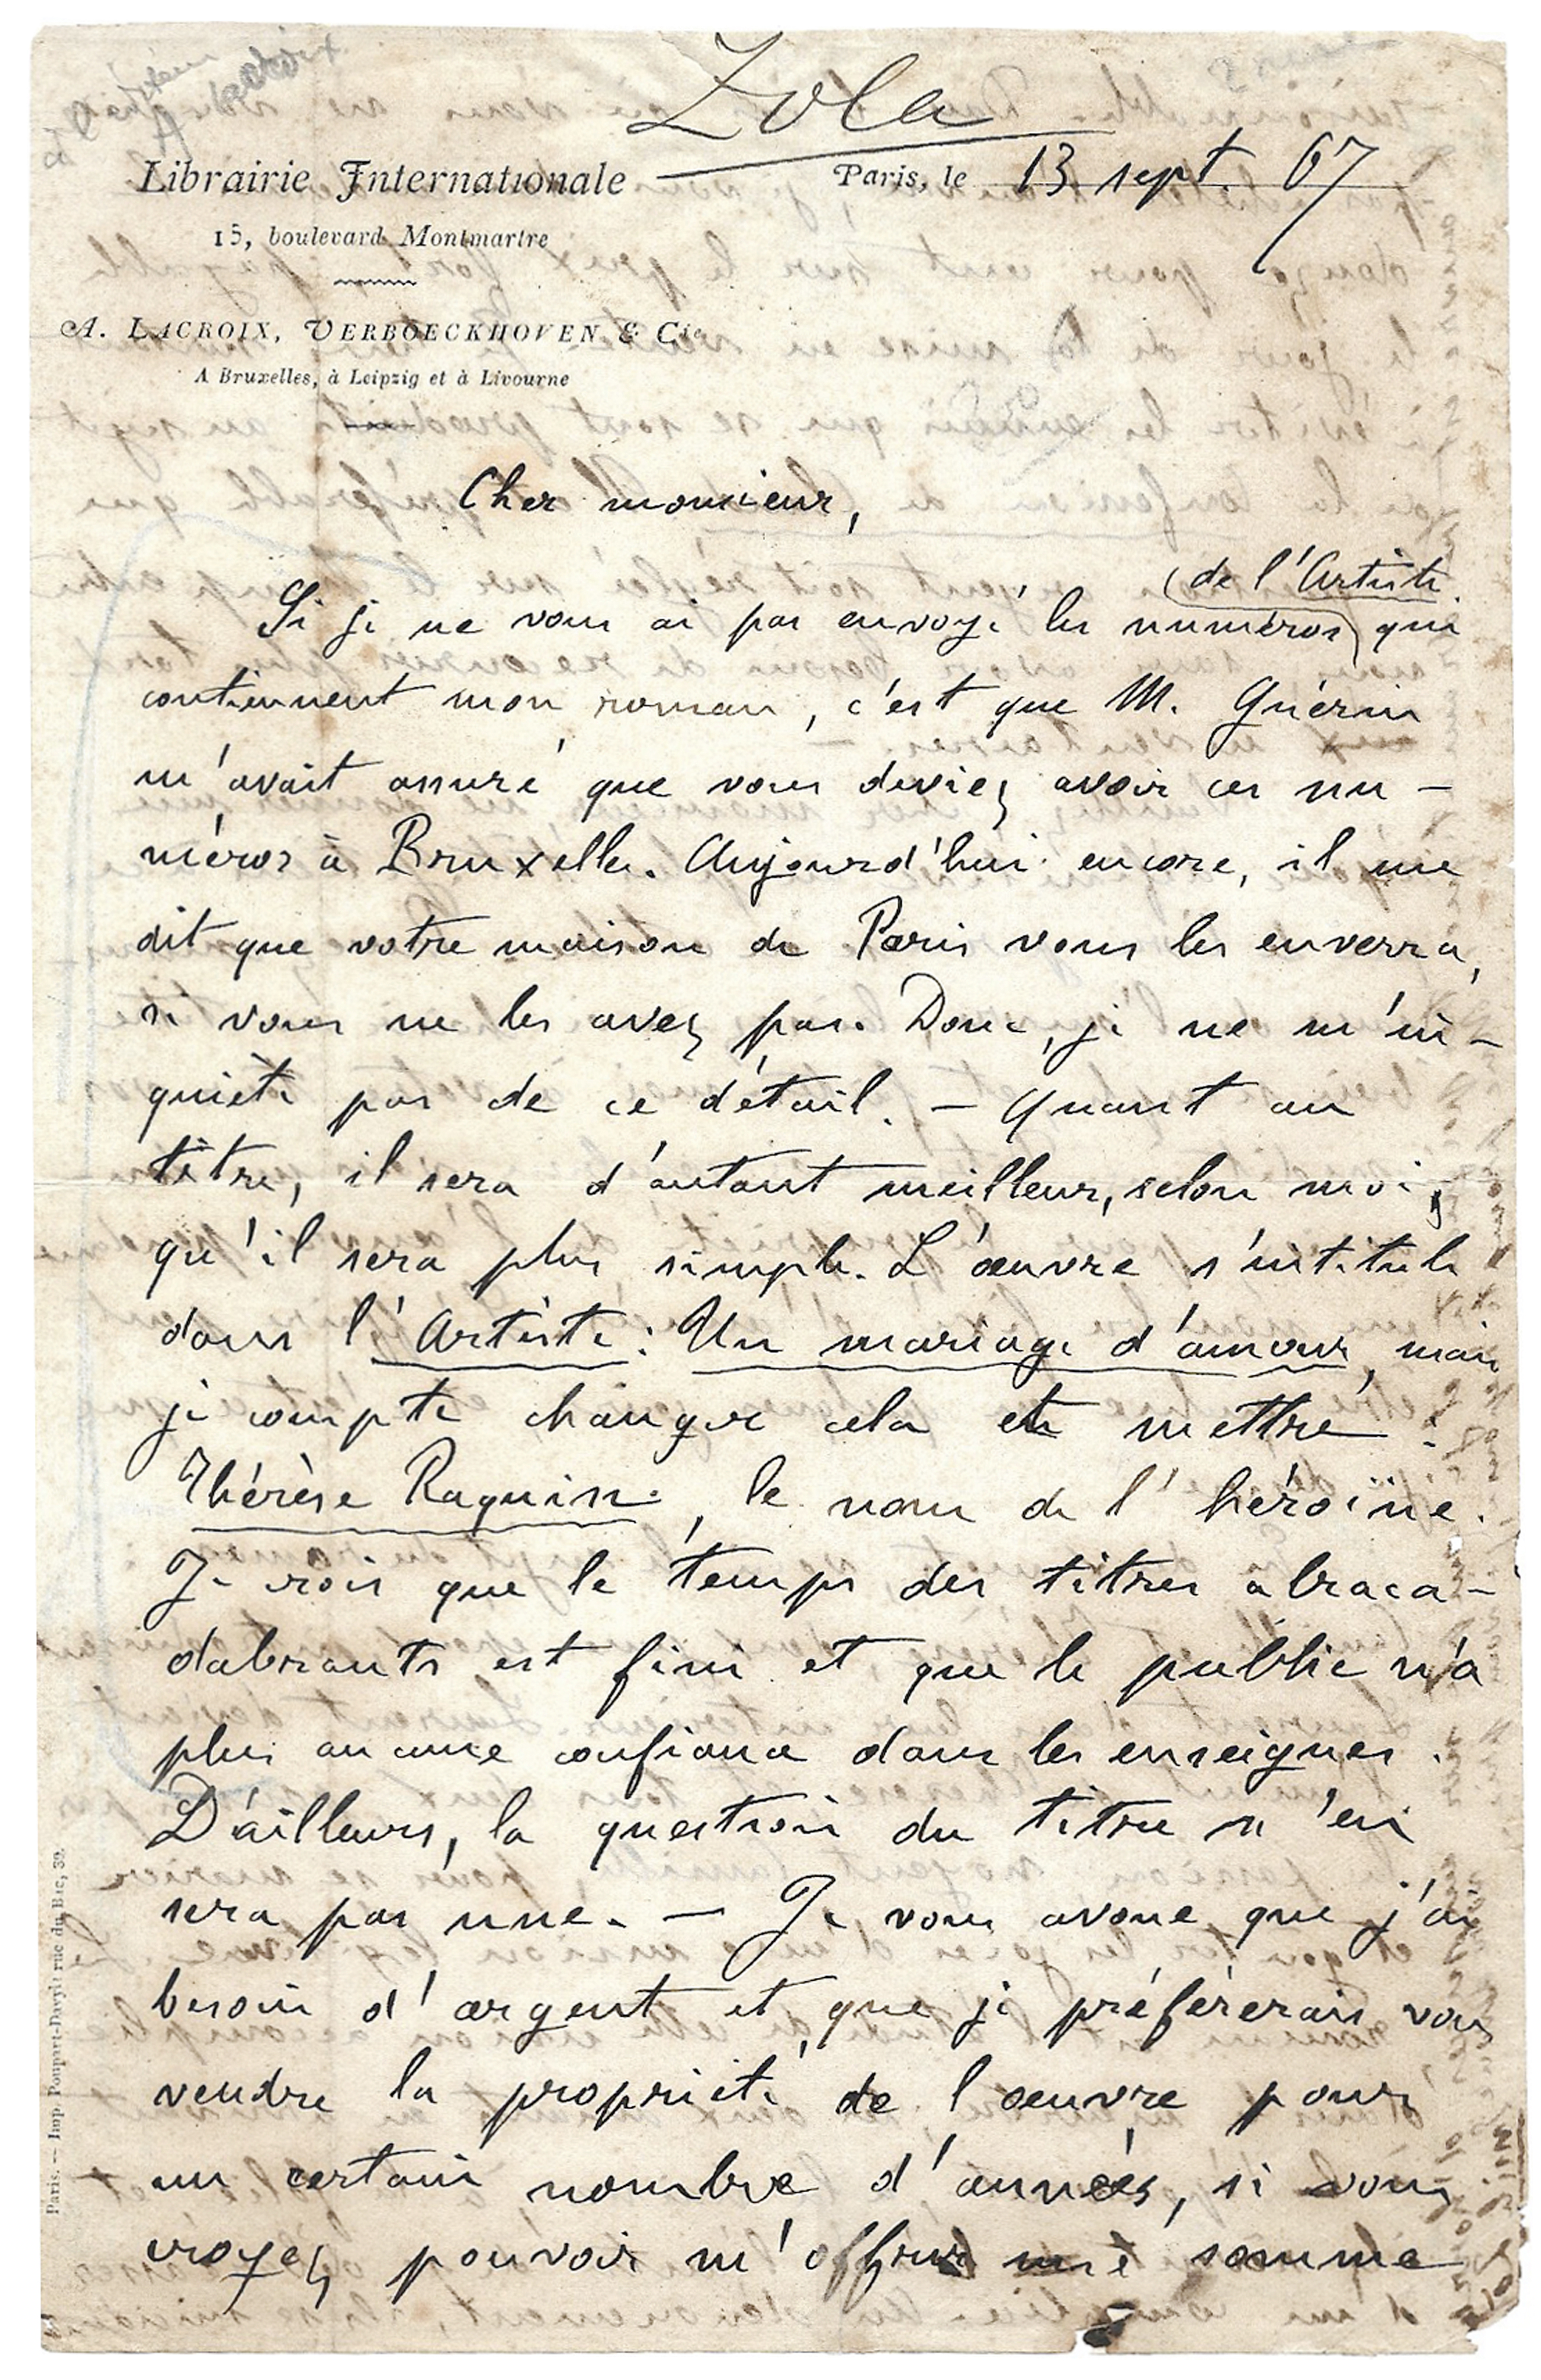 Zola
Librairie Internationale
Paris, le 13 sept. 67
15, boulevard Montmartre
A. LACROIX, VERBOECKHOVEN & Cie
A Bruxelles, à Leipzig et à Livourne
Cher monsieur,
de l'Artiste
Si je ne vous ai pas envoyé les numéros qui
contiennent mon roman, c'est que M. Guérin
m'avait assuré que vous deviez avoir ces nu-
méros à Bruxelles. Aujourd'hui encore, il me
dit que votre maison de Paris vous les enverra,
si vous ne les avez pas. Donc, je ne m'in-
quiète pas de ce détail. — Quant au
titre, il sera d'autant meilleur, selon moi,
qu'il sera plus simple. L'œuvre s'intitule
dans l'Artiste : Un mariage d'amour, mais
je compte changer cela et mettre :
Thérèse Raquin, le nom de l'héroïne.
Je crois que le temps des titres abraca-
dabrants est fini et que le public n'a
plus aucune confiance dans les enseignes.
D'ailleurs, la question du titre n'en
sera pas une. — Je vous avoue que j'ai
besoin d'argent et que je préférerais vous
vendre la propriété de l'œuvre pour
un certain nombre d'années, si vous
croyez pouvoir m'offrir une somme
Paris. — Imp. Poupart-Davyl, rue du Bac, 30.